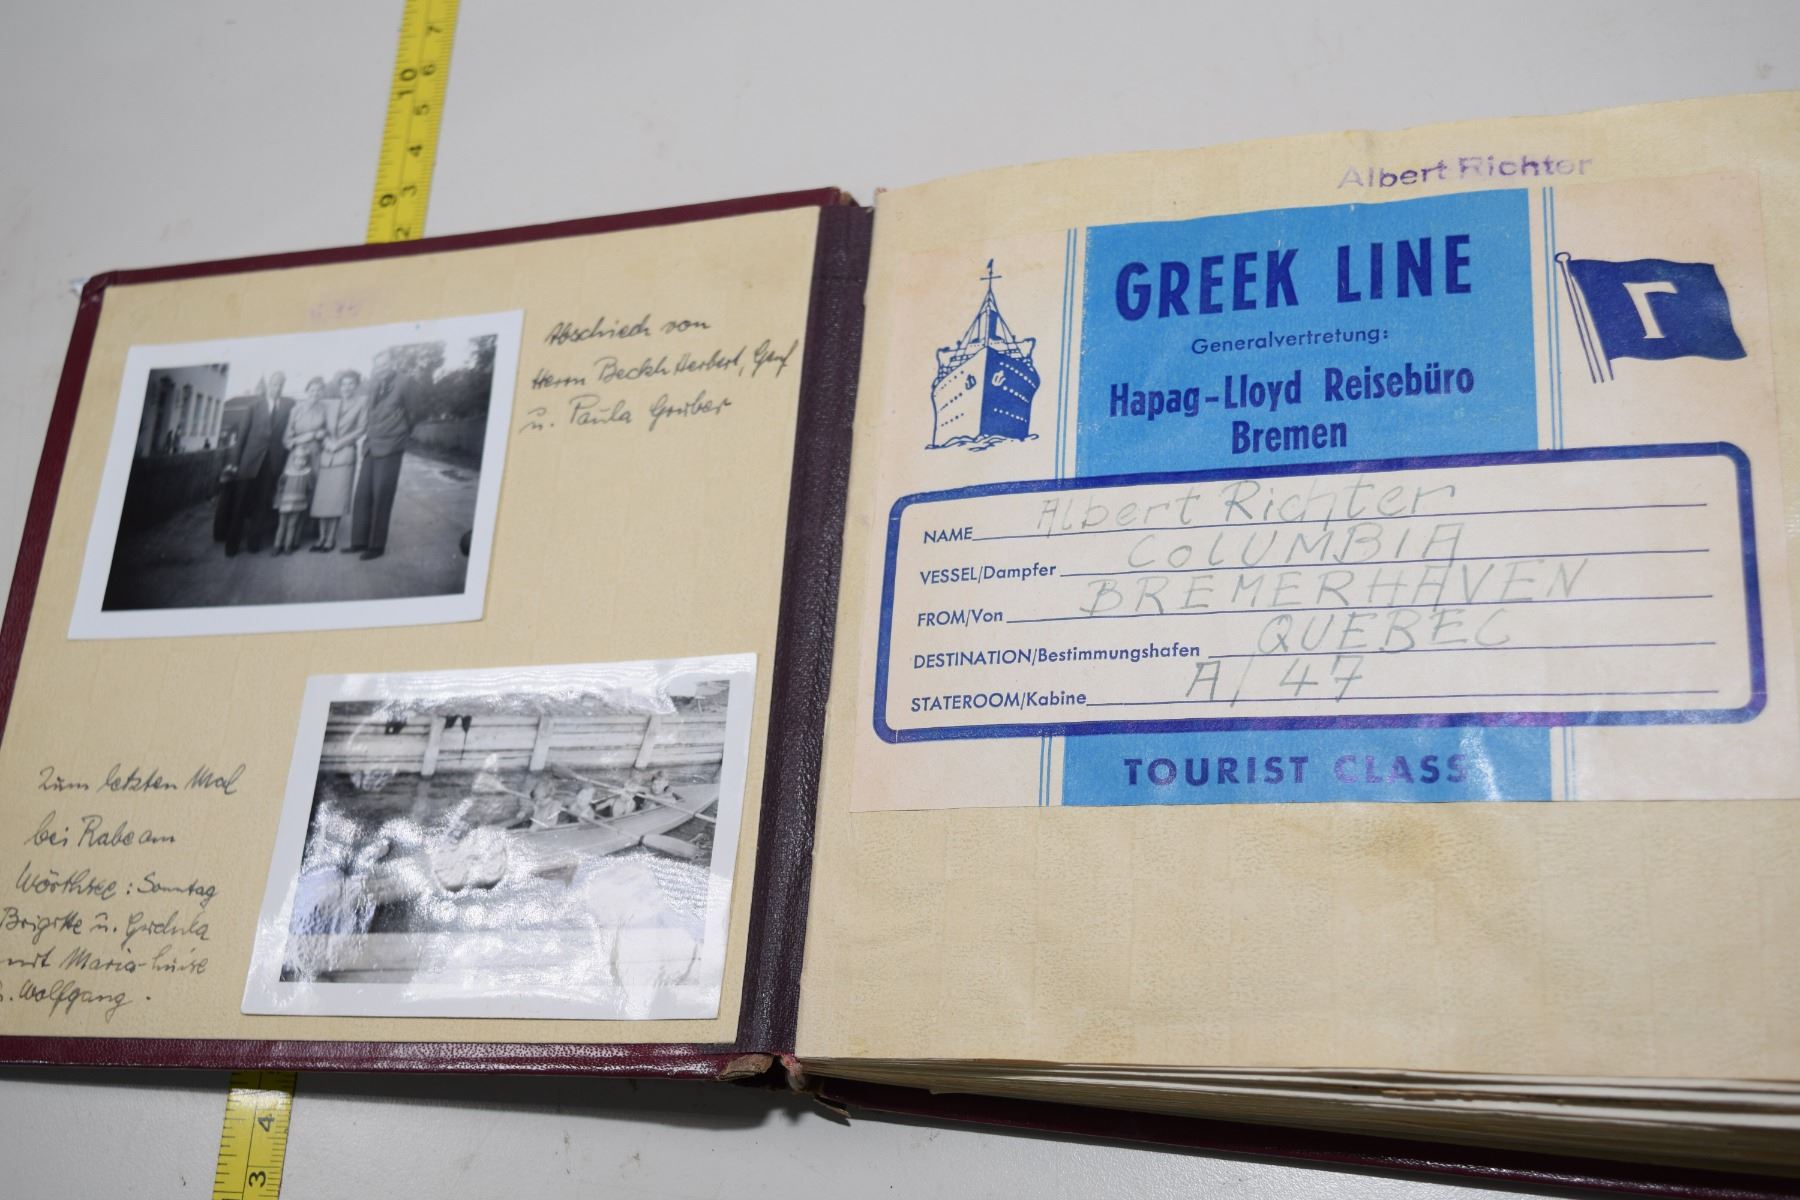 Abschied von
Herrn Beckh Herbert, Genf
u. Paula Gruber
Zum letzten Mal
bei Rabe am
Wörthsee: Sonntag
Brigitte u. Gudula
mit Maria-Luise
u. Wolfgang.
Albert Richter
GREEK LINE
Generalvertretung:
Hapag-Lloyd Reisebüro
Bremen
Γ
NAME Albert Richter
VESSEL/Dampfer COLUMBIA
FROM/Von BREMERHAVEN
DESTINATION/Bestimmungshafen QUEBEC
STATEROOM/Kabine A/47
TOURIST CLASS
7
6
10
5
4
3
9
2
4
3